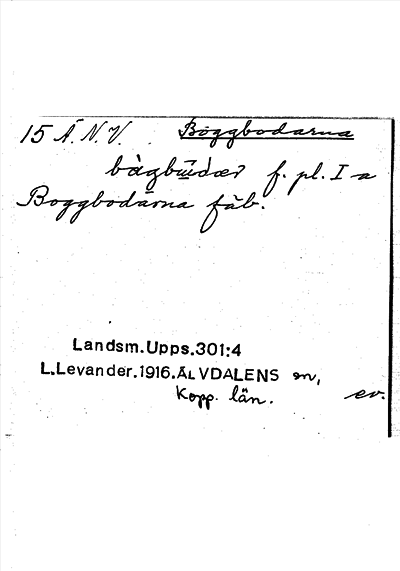 15 Ä. N. V. Böggbodarna
bàgbūdær f. pl. I-a
Boggbodarna fäb.
Landsm.Upps.301:4
L.Levander.1916.ÄLVDALENS sn,
Kopp. län. ev.